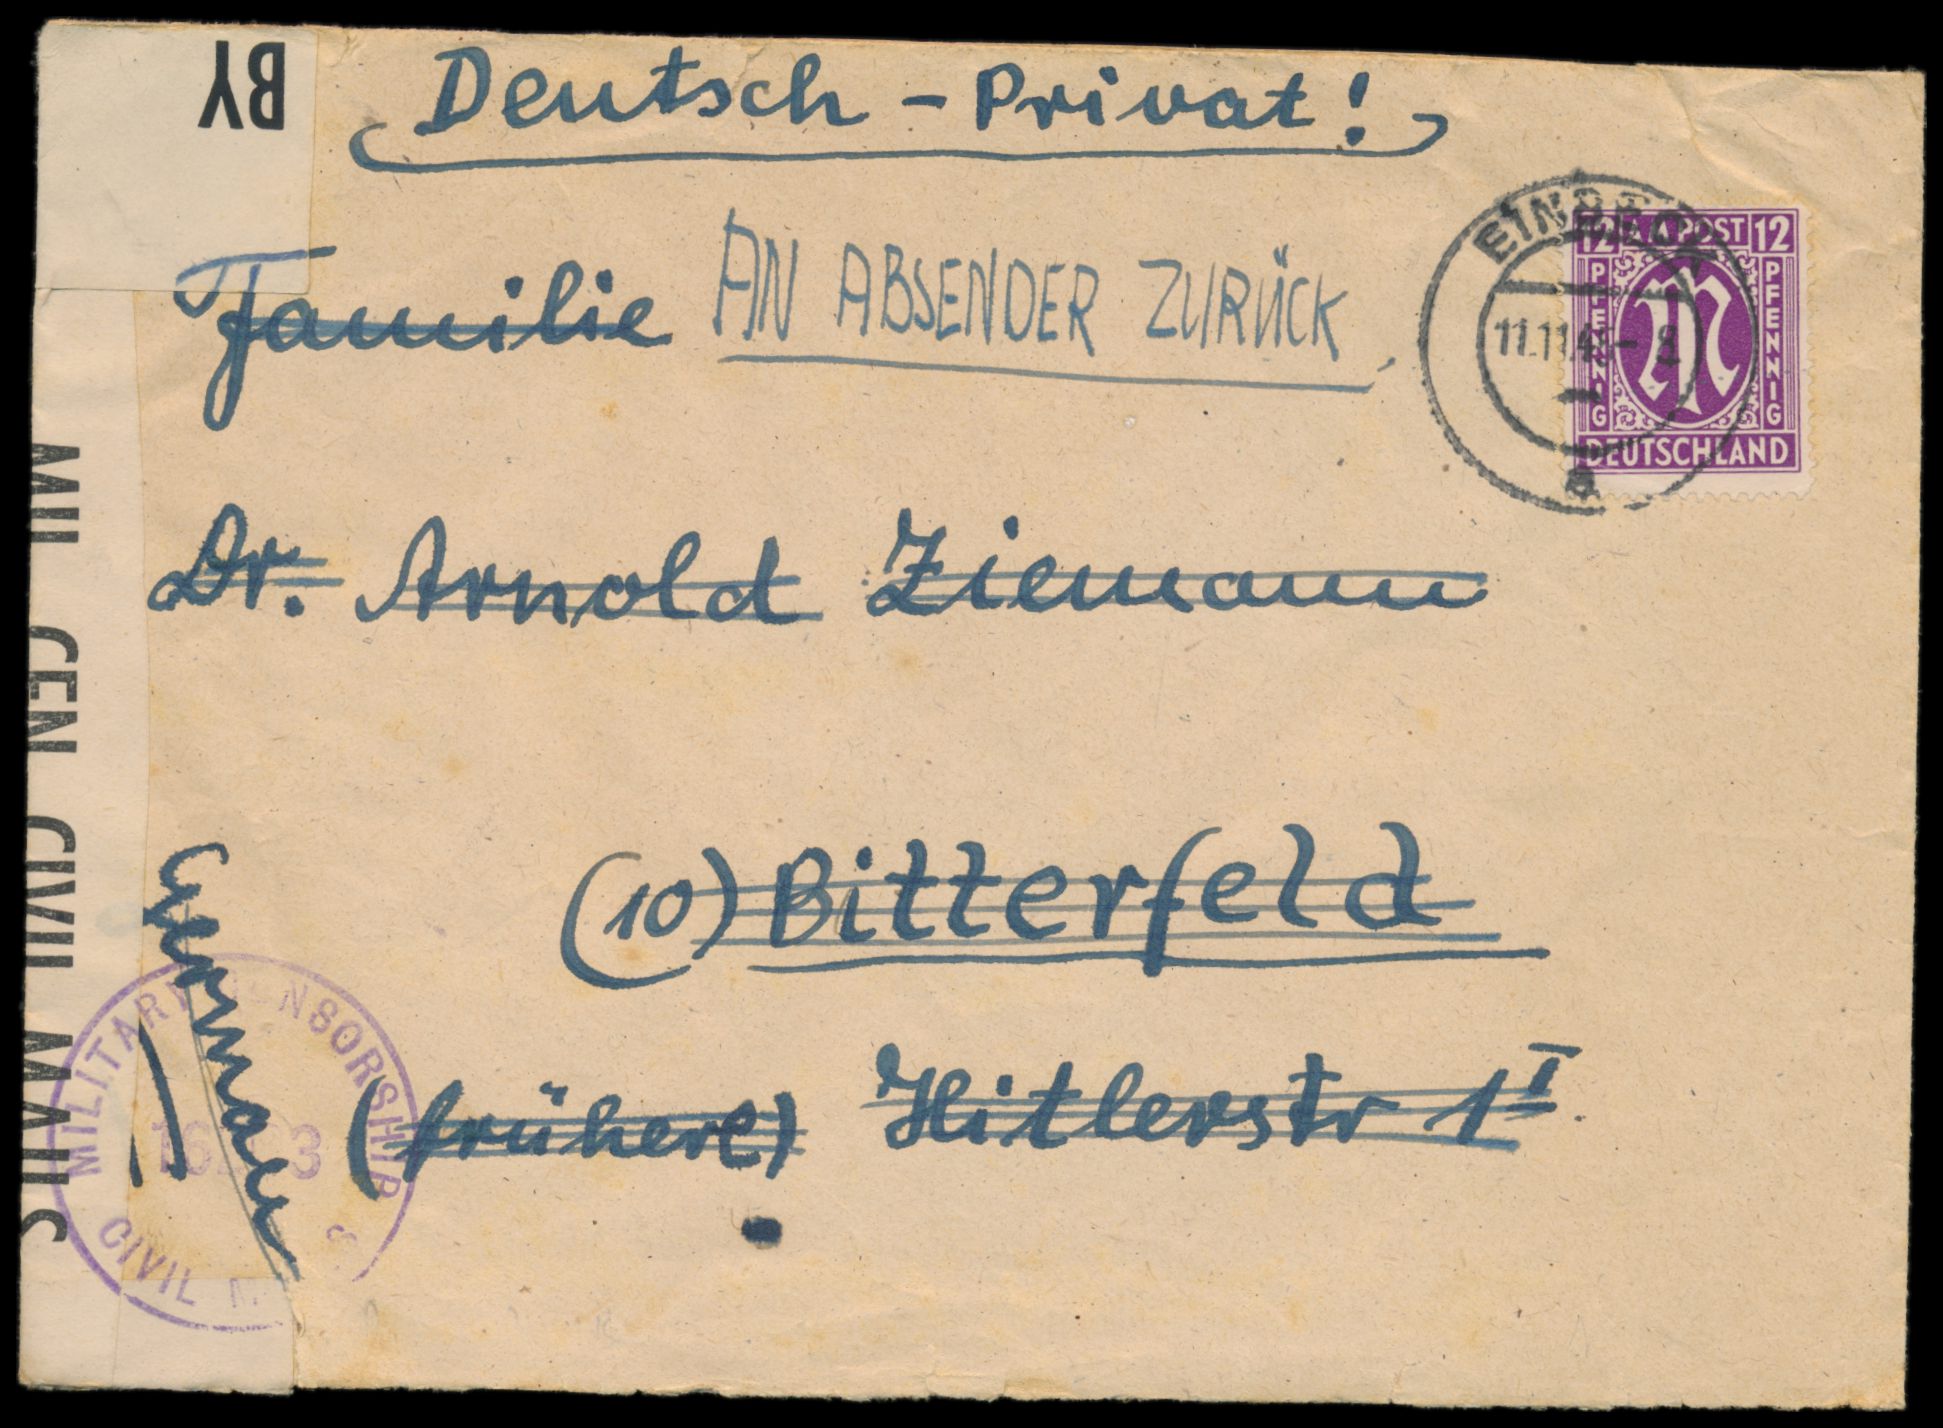 BY
Deutsch - Privat!
Familie AN ABSENDER ZURÜCK
12 A M POST 12
PFENNIG PFENNIG
DEUTSCHLAND
11.11.4 - 8
a
Dr. Arnold Ziemann
(10) Bitterfeld
(frühere) Hitlerstr 1 I
German
MIL. CEN. CIVIL MAILS
MILITARY CENSORSHIP
CIVIL